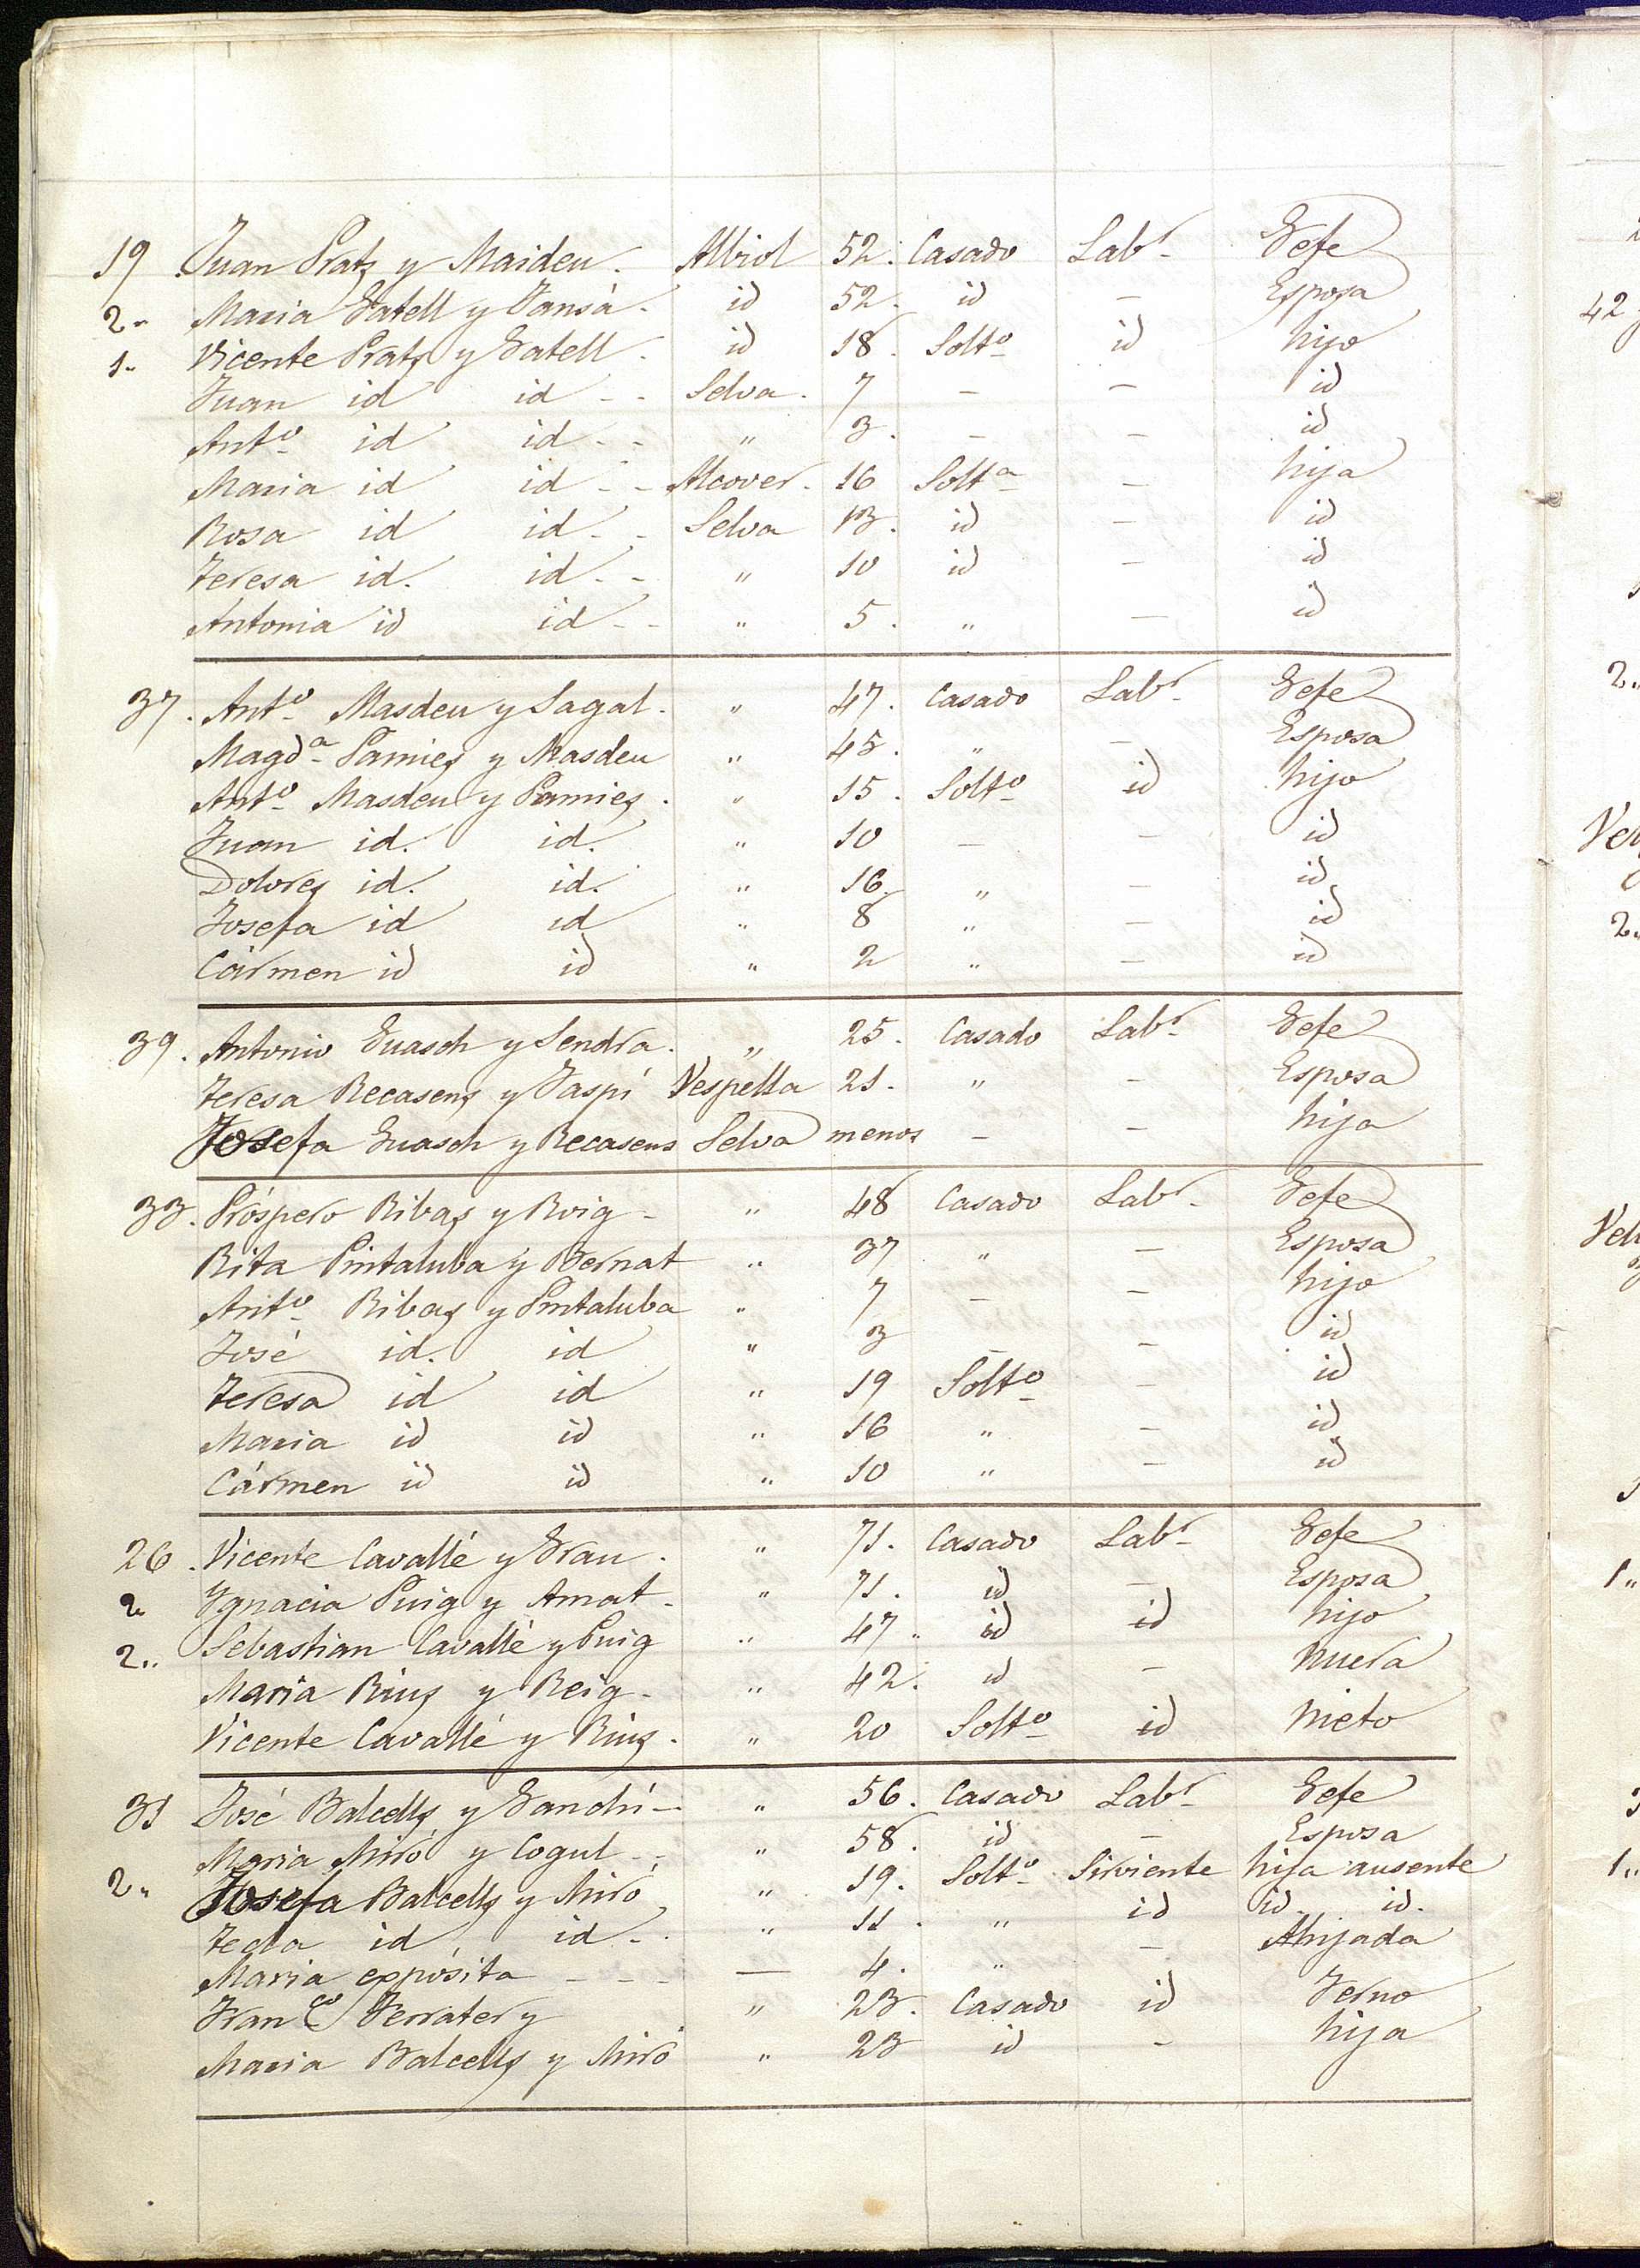 19 Juan Pratz y Maideu. Albiol 52. Casado Labr. Gefe
2" Maria Gatell y Jansá. id 52. id — Esposa
1" Vicente Pratz y Gatell. id 18. Solto id hijo
Juan id id - - Selva. 7 — — id
Anto id id - - " 3. — — id
Maria id id - - Alcover. 16 Solta — hija
Rosa id id - - Selva 13. id — id
Teresa id. id - - " 10 id — id
Antonia id id - - " 5. " — id
37. Anto Masdeu y Sagal. " 47. Casado Labr. Gefe
Magda Pamies y Masdeu " 45. " — Esposa
Anto Masdeu y Pamies. " 15. Solto id hijo
Juan id. id. " 10 — — id
Dolores id. id. " 16. " — id
Josefa id id " 8 " — id
Cármen id id " 2 " — id
39. Antonio Guasch y Sendra. " 25. Casado Labr. Gefe
Teresa Recasens y Jaspí Vespella 21. " — Esposa
Josefa Guasch y Recasens Selva menos — — hija
33. Próspero Ribas y Roig - " 48 Casado Labr. Gefe
Rita Pintaluba y Bernat " 37 " — Esposa
Anto Ribas y Pintaluba " 7 — — hijo
José id. id " 3 — — id
Teresa id id " 19 Solto — id
Maria id id " 16 " — id
Cármen id id " 10 " — id
26. Vicente Cavallé y Grau. " 71. Casado Labr Gefe
2" Ygnacia Puig y Amat - " 71. id — Esposa
2" Sebastian Cavallé y Puig " 47. id id hijo
Maria Rius y Reig - " 42. id — Nuera
Vicente Cavallé y Rius. " 20 Solto id Nieto
31 José Balcells y Gandú - " 56. Casado Labr Gefe
Maria Miró y Cogul - - " 58. id — Esposa
2" Josefa Balcells y Miró " 19. Solto Sirviente hija ausente
Tecla id id - " 11. " id id. id.
Maria expósita - - - — 4. " — Ahijada
Franco Ferrater y " 23. Casado id Yerno
Maria Balcells y Miró " 23 id — hija
42
2"
2"
1"
1"